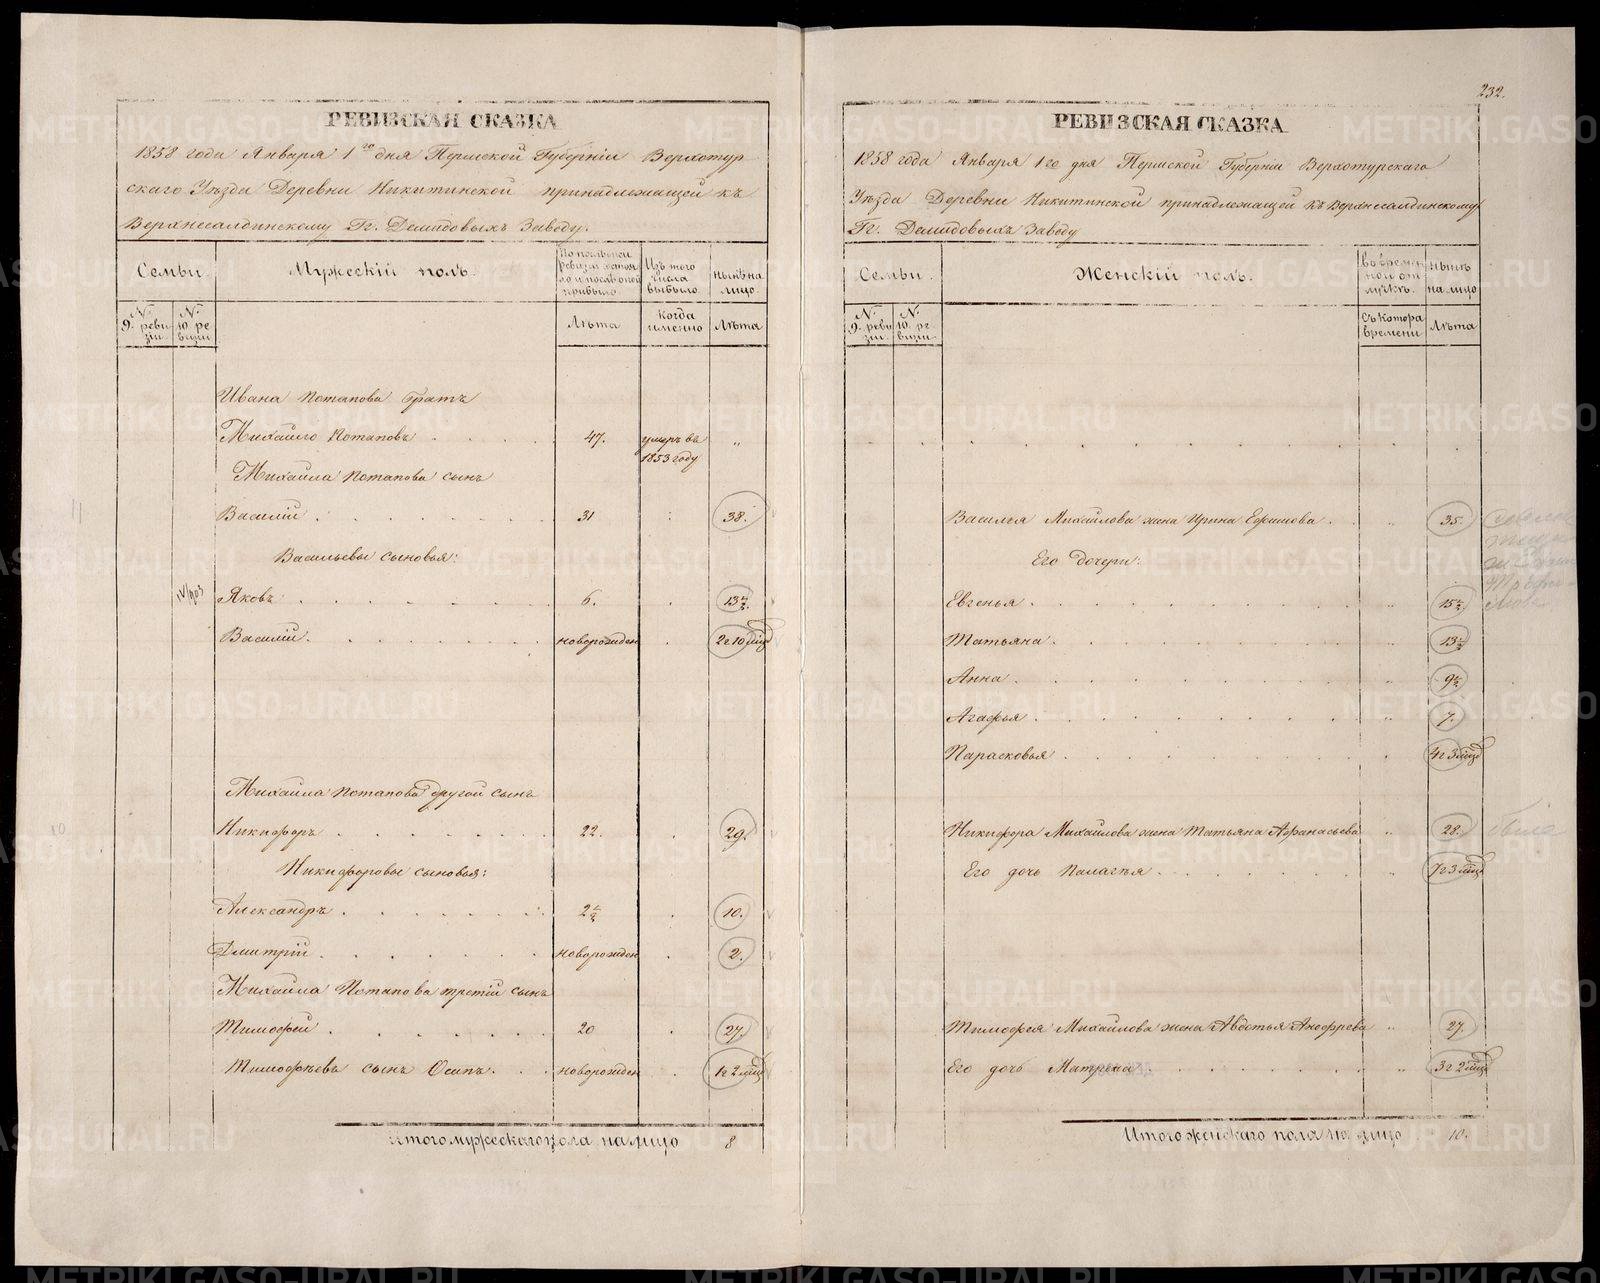 232.
РЕВИЗСКАЯ СКАЗКА
1858 года Января 1го дня Пермской Губерніи Верхотур
скаго Уѣзда Деревни Никитинской принадлежащей къ
Верхнесалдинскому Гг. Демидовыхъ Заводу.
Семьи.
Мужескій полъ.
По послѣдней ревизіи состояло и послѣ оной прибыло
Изъ того числа выбыло
нынѣ на лицо.
№ 9. ревизіи.
№ 10 ревизіи
Лѣта
Когда именно
Лѣта
Ивана Потапова братъ
Михайло Потаповъ 47. умеръ въ 1853 году „
Михайла Потапова сынъ
Василій 31 38.
Васильевы сыновья:
Яковъ 6. 13½
Василій новорожден 2г10мѣс
Михайла Потапова другой сынъ
Никифоръ 22. 29.
Никифоровы сыновья:
Александръ 2½ 10.
Дмитрій новорожден 2.
Михайла Потапова третій сынъ
Тимофей 20 27.
Тимофѣевъ сынъ Осипъ новорожден 1г2мѣс
Итого мужескаго пола на лицо 8
РЕВИЗСКАЯ СКАЗКА
1858 года Января 1го дня Пермской Губерніи Верхотурскаго
Уѣзда Деревни Никитинской принадлежащей къ Верхнесалдинскому
Гг. Демидовыхъ Заводу
Семьи.
Женскій полъ.
Во временной отлучкѣ.
нынѣ на лицо
№ 9. ревизіи.
№ 10. ревизіи.
Съ котора времени
Лѣта
Василья Михайлова жена Ирина Ефимова „ 35.
Его дочери:
Евгенья „ 15½
Татьяна „ 13½
Анна „ 9½
Агафья „ 7.
Парасковья „ 4г3мѣс
Никифора Михайлова жена Татьяна Афанасьева „ 28.
Его дочь Палагѣя „ 7г3мѣс
Тимофея Михайлова жена Авдотья Анофрева „ 27.
Его дочь Матрена „ 3г2мѣс
Итого женскаго пола на лицо 10.
METRIKI.GASO-URAL.RU